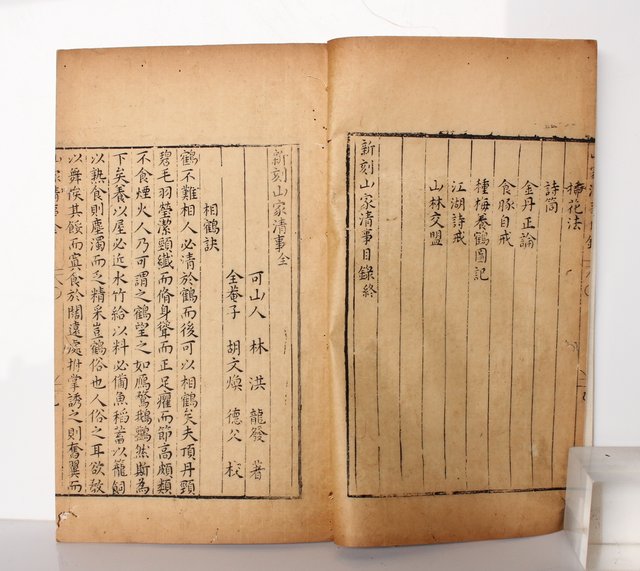 插花法
詩筒
金丹正論
食豚自戒
種梅養鶴圖記
江湖詩戒
山林交盟
新刻山家清事目錄終
新刻山家清事全
可山人 林 洪 龍發 著
全菴子 胡文煥 德父 校
相鶴訣
鶴不難相人必清於鶴而後可以相鶴矣夫頂丹頸
碧毛羽瑩潔頸纖而脩身聳而正足癯而節高頗類
不食煙火人乃可謂之鶴望之如鴈鶩鵝鸛然斯為
下矣養以屋必近水竹給以料必備魚稻蓄以籠飼
以熟食則塵濁而乏精采豈鶴俗也人俗之耳欲教
以舞俟其餒而寘食於闊遠處拊掌誘之則奮翼而